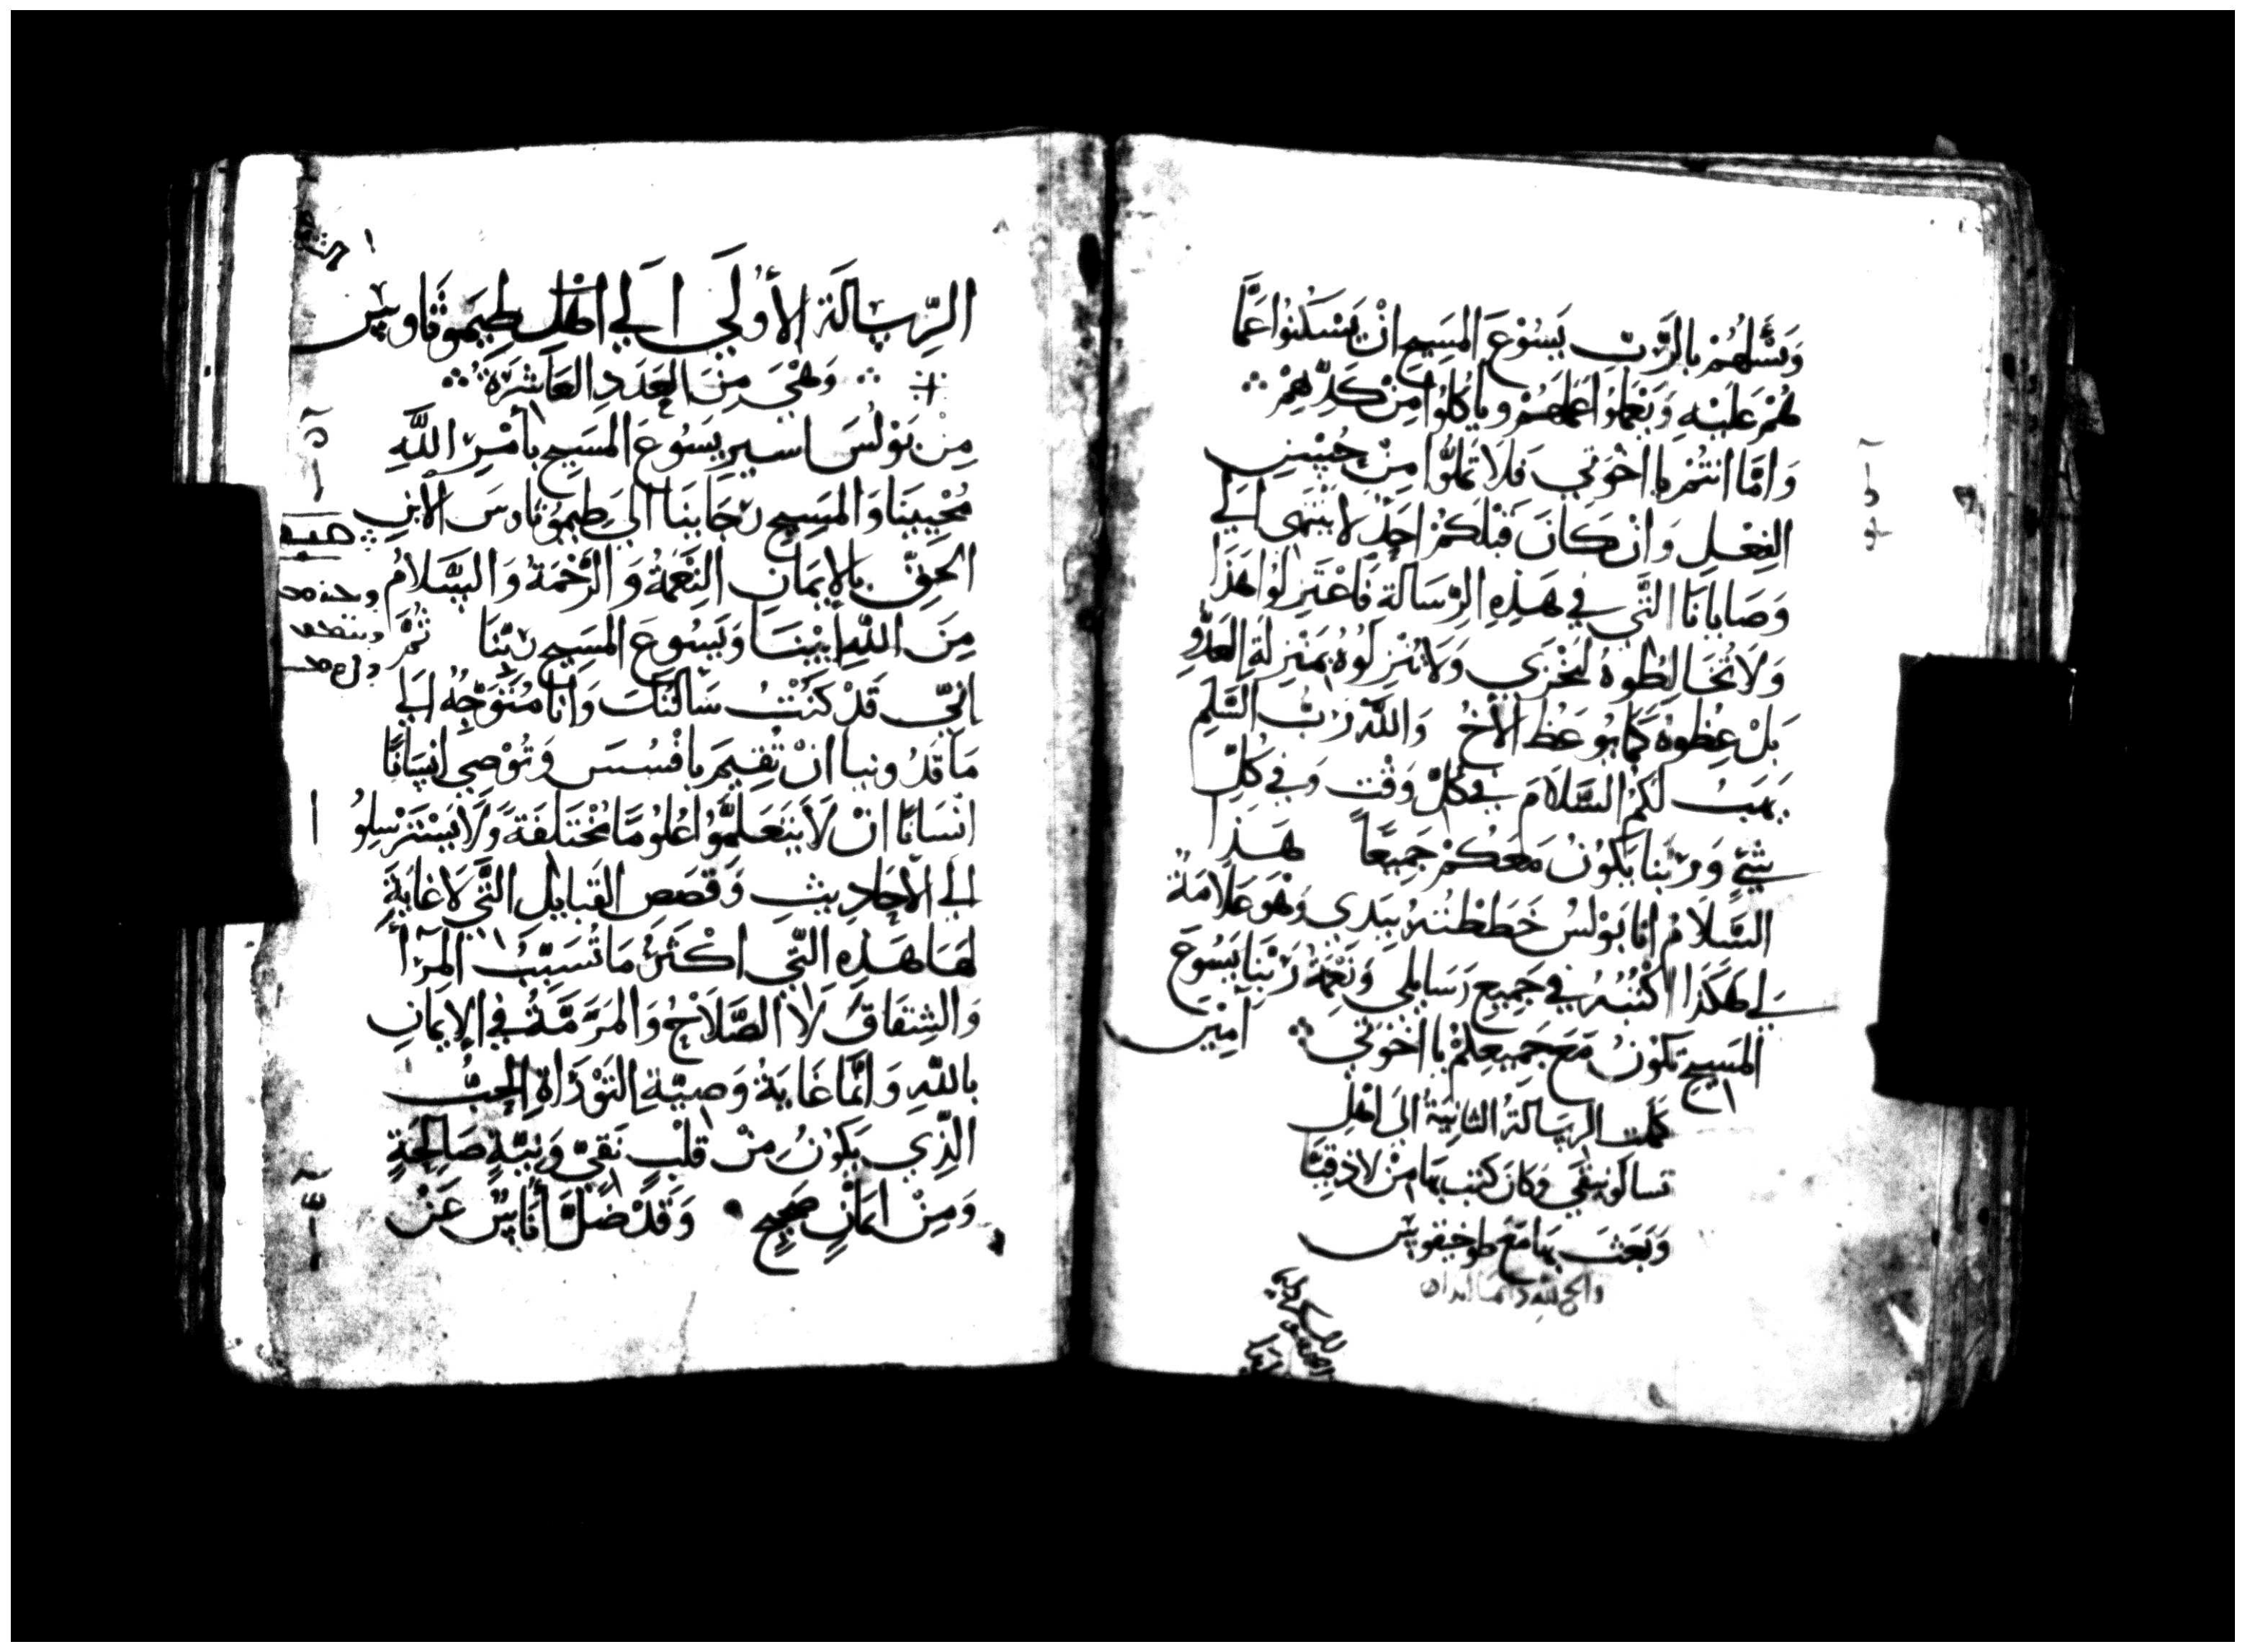 وَنَسْلُهُمْ بِالرَّبِّ يَسُوْعَ المَسِيحِ انْ يَسْكُنُوا عَمَّا
هُمْ عَلَيْهِ وَيَعْمَلُوا عَمَلَهُمْ وياكُلُوا مِنْ كَدِّهِمْ
وَامَّا انتُمْ يا اخْوَتي فَلَا تَمَلُّوا مِنْ حُسْنِ
الفِعْلِ وَانْ كَانَ قَبْلَكُمْ احَدٌ لا يَنْتَهى الَي
وَصَايانَا التَّي في هَذِهِ الرِّسَالة فَاعْتَزِلُوا هَذَا
وَلا تُخَالِطُوهُ لِيَخْزَي وَلا تُنْزِلُوهُ بِمَنْزِلَةِ العَدُوِّ
بَلْ عِظُوهُ كَمَا يُوعَظُ الأَخُ وَاللّهُ رَبُّ السَّلَمِ
يَهَبُ لَكُمُ السَّلَامَ في كُلِّ وَقْت وَفي كُلِّ
شَيْءٍ وَرَبُّنَا يَكُوْنُ مَعَكُمْ جَمِيعاً هَذَا
السَّلَامُ انا بَوْلُسُ خَطَطْتُهُ بِيَدي وَهُوَ عَلَامَةٌ
لِي هَكَذَا اكْتُبُهُ في جَمِيعِ رَسَايلي وَنِعْمَةُ رَبِّنَا يَسُوعَ
المَسِيحِ تَكُوْنُ مَعَ جَمِيعِكُمْ يا اخْوَتي امِيْن
كَمُلَت الرِسَالَةُ الثَانِيَةُ الَى اهْلِ
تسالُونيقَي وَكَانَ كَتَبَ بِهَا مِنْ لاذِقِيَّا
وَبَعَثَ بِهَا مَعَ طوخيقوس
الرِّسَالَة الأُوْلَي الَي اهْلِ طِيمَوثَاوس
وَهْيَ مِنَ العَدَدِ العَاشِرَة
مِنْ بَوْلُسَ اسير يَسُوعَ المَسِيحِ بأمْرِ اللَّهِ
مُحْيِينَا وَالمَسِيحِ رَجَاينَا الي طِيمُوثاوسَ الابْنِ
الحَقِّ بالإيمَانِ النِعْمَةُ وَالرَّحْمَةُ وَالسَّلامُ
مِنَ اللَّهِ ابِيْنَا وَيَسُوعَ المَسِيحِ رَبِّنَا ثُمَّ
انِّي قَدْ كُنْتُ سَالْتُكَ وَأنَا مُتَوَجِّهٌ الَي
مَاقَدُونيا انْ تُقِيمَ بافْسُسَ وَتُوْصي انسَانًا
انْسَانًا انْ لَا يَتَعَلَّمُوا عُلُومًا مُخْتَلِفَةً وَلَا يَسْتَرْسِلُو
الَي الأحَادِيثِ وَقَصَصِ القَبَايِلِ التَّي لَا غايَةَ
لَهَا هَذِهِ التِّي اكْثَرُ مَا تُسَبِّبُ المَرَأ
وَالشِقَاقَ لا الصَّلَاحُ وَالمَرَمَّةُ في الإيْمَانِ
باللَّهِ وَانَّمَا غَايَةُ وَصِيَّةِ التَوْرَاةِ الحُبُّ
الذِّي يَكُوْنُ مِنْ قَلْبٍ نَقيٍّ وَنِيَّةٍ صَالِحَةٍ
وَمِنْ ايمَانٍ صَحِيحٍ وَقَدْ ضَلَّ أُنَاسٌ عَنْ